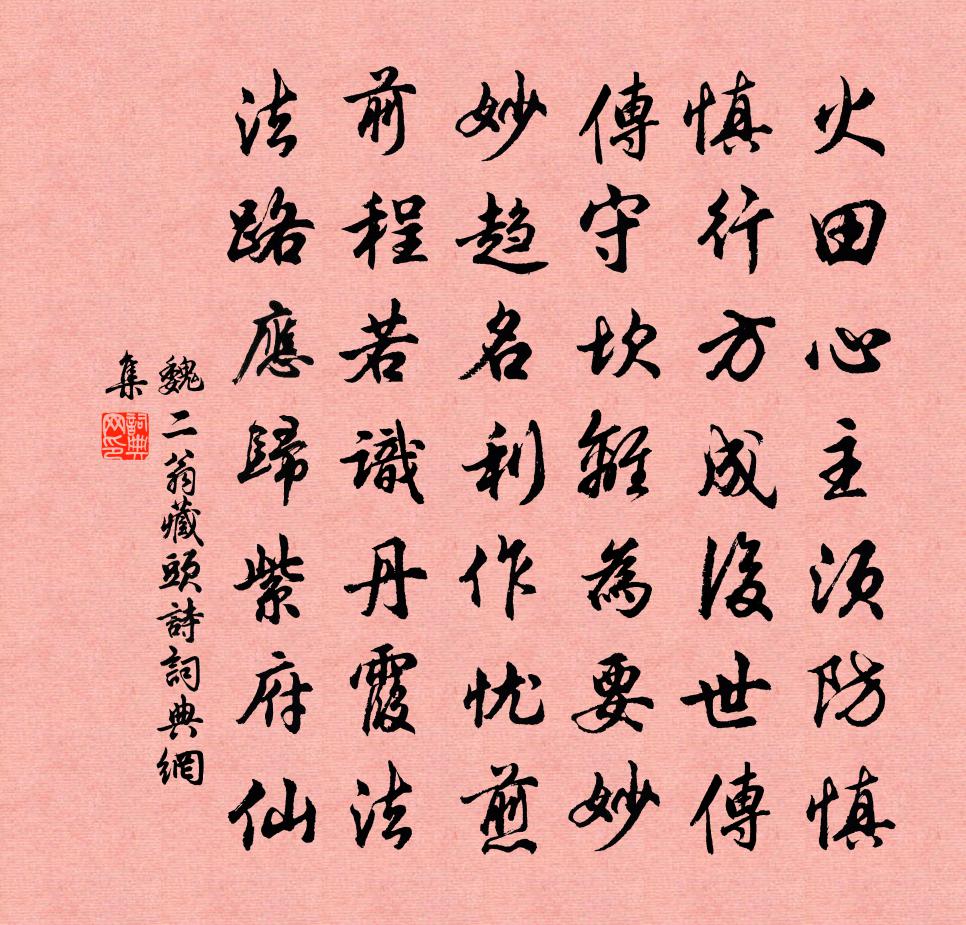 火田心主須防慎
慎行方成後世傳
傳守坎離為要妙
妙趨名利作忧煎
前程若識丹霞法
法路應歸紫府仙
魏二翁藏頭詩詞典網
集
詞典网印